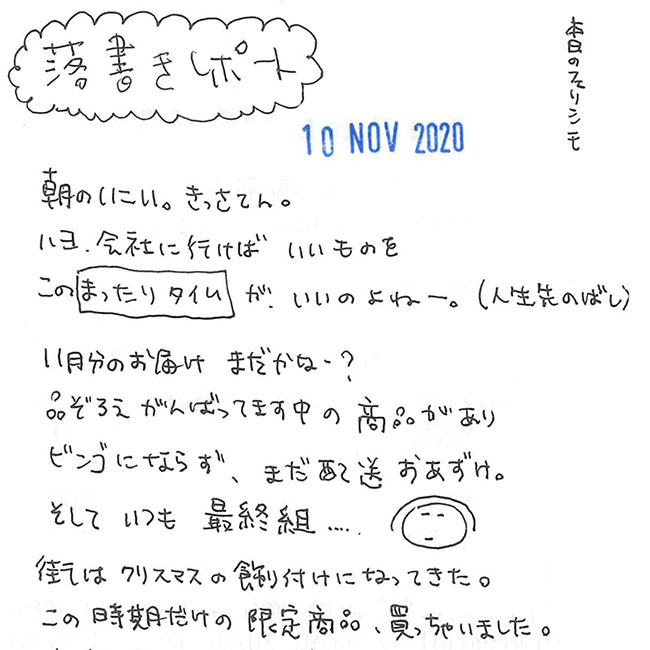 本日のフェリシモ
落書きレポート
10 NOV 2020
朝のいこい。きっさてん。
ハヨ、会社に行けば いいものを
この まったりタイム が、いいのよねー。(人生先のばし)
11月分のお届け まだかなー?
品ぞろえ がんばってます中の 商品があり
ビンゴにならず、まだ配送 おあずけ。
そして いつも 最終組‥‥.
街では クリスマスの飾り付けになってきた。
この時期だけの 限定商品、買っちゃいました。